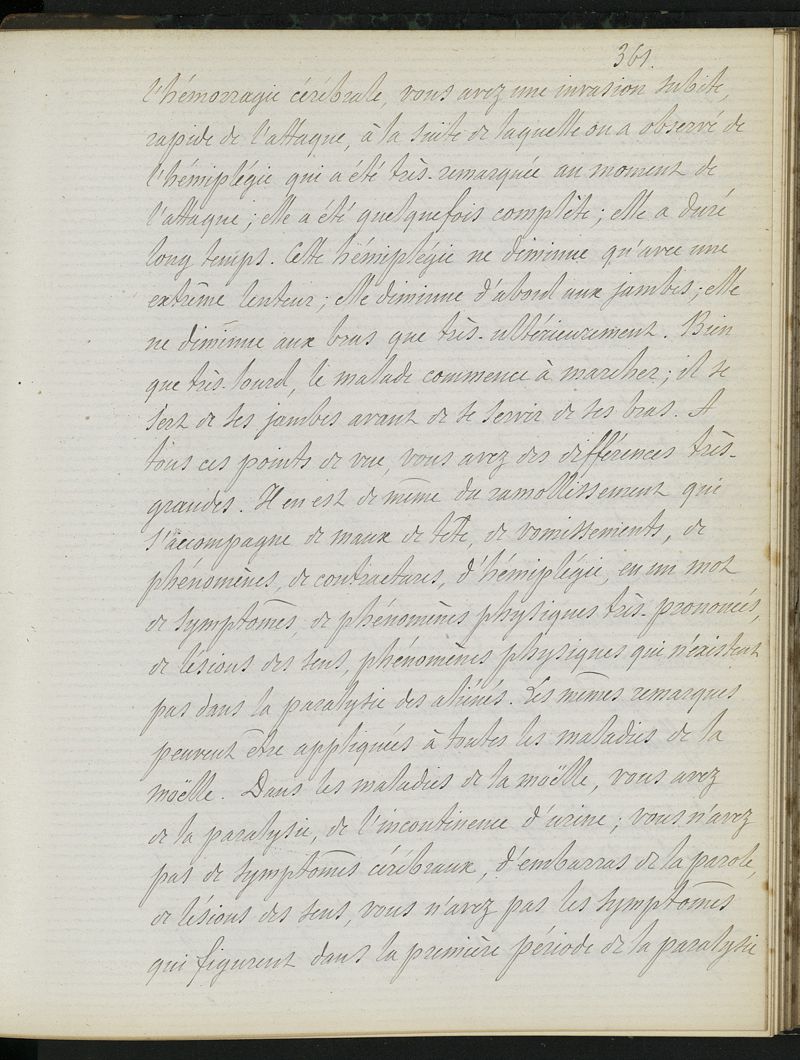 361.
l'hémorragie cérébrale, vous avez une invasion subite,
rapide de l'attaque, à la suite de laquelle on a observé de
l'hémiplégie qui a été très-remarquée au moment de
l'attaque ; elle a été quelquefois complète ; elle a duré
long temps. Cette hémiplégie ne diminue qu'avec une
extrême lenteur ; elle diminue d'abord aux jambes ; elle
ne diminue aux bras que très-ultérieurement. Bien
que très-lourd, le malade commence à marcher ; il se
sert de ses jambes avant de se servir de ses bras. A
tous ces points de vue, vous avez des différences très-
grandes. Il en est de même du ramollissement qui
s'accompagne de maux de tête, de vomissements, de
phénomènes, de contractures, d'hémiplégie, en un mot
de symptômes, de phénomènes physiques très-prononcés,
de lésions des sens, phénomènes physiques qui n'existent
pas dans la paralysie des aliénés. Les mêmes remarques
peuvent être appliquées à toutes les maladies de la
moëlle. Dans les maladies de la moëlle, vous avez
de la paralysie, de l'incontinence d'urine ; vous n'avez
pas de symptômes cérébraux, d'embarras de la parole,
de lésions des sens, vous n'avez pas les symptômes
qui figurent dans la première période de la paralysie